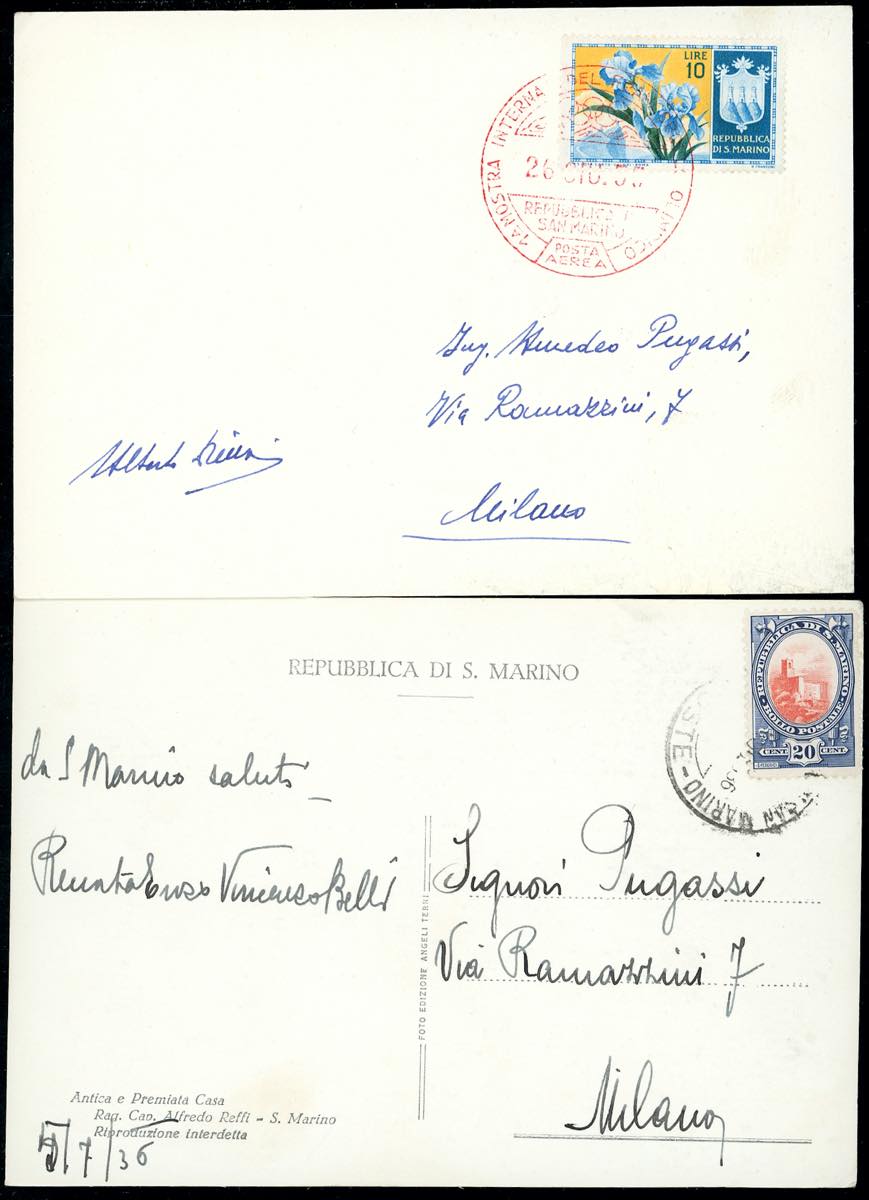 LIRE
10
REPUBBLICA
DI S. MARINO
1A MOSTRA INTERNA DEL OLIMPICO
26 GIU.
REPUBBLICA
SAN MARINO
POSTA
AEREA
Ing. Amedeo Pugassi,
Via Ramazzini, 7
Alberto
Milano
REPUBBLICA DI S. MARINO
REPUBBLICA DI S. MARINO
BOLLO POSTALE
CENT. 20 CENT.
SAN MARINO - STE -
36
da S Marino saluti
Renato Enzo Vincenzo Belli
Signori Pugassi
Via Ramazzini 7
Milano
FOTO EDIZIONE ANGELI TERNI
Antica e Premiata Casa
Rag. Cap. Alfredo Reffi - S. Marino
Riproduzione interdetta
7/36